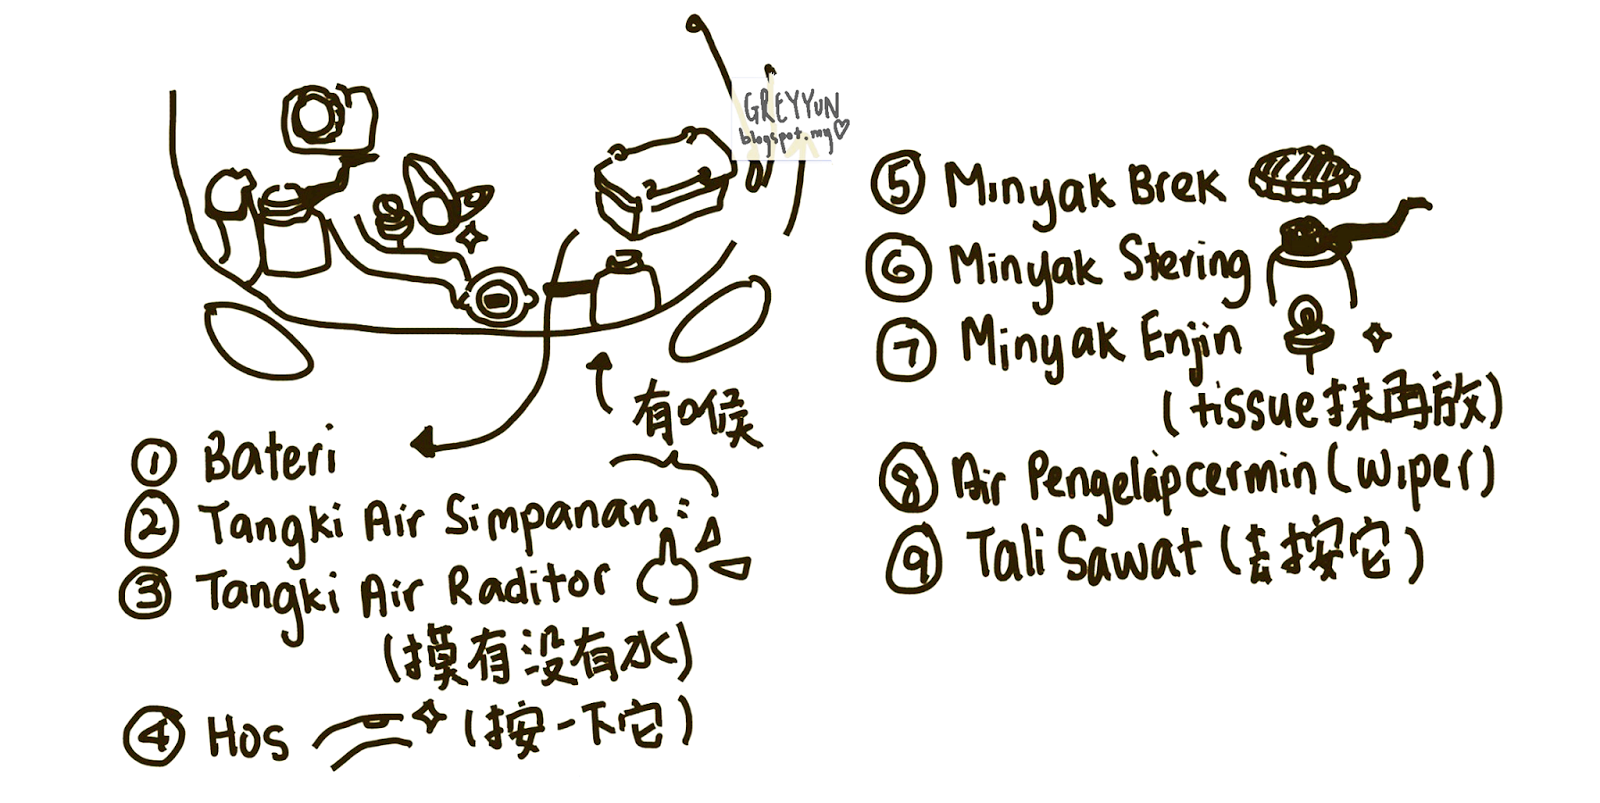 GREYYUN
blogspot.my♡
有时候
① Bateri
② Tangki Air Simpanan :
③ Tangki Air Raditor
(摸有没有水)
④ Hos (按一下它)
⑤ Minyak Brek
⑥ Minyak Stering
⑦ Minyak Enjin
(tissue抹再放)
⑧ Air Pengelap cermin (wiper)
⑨ Tali Sawat (去按它)